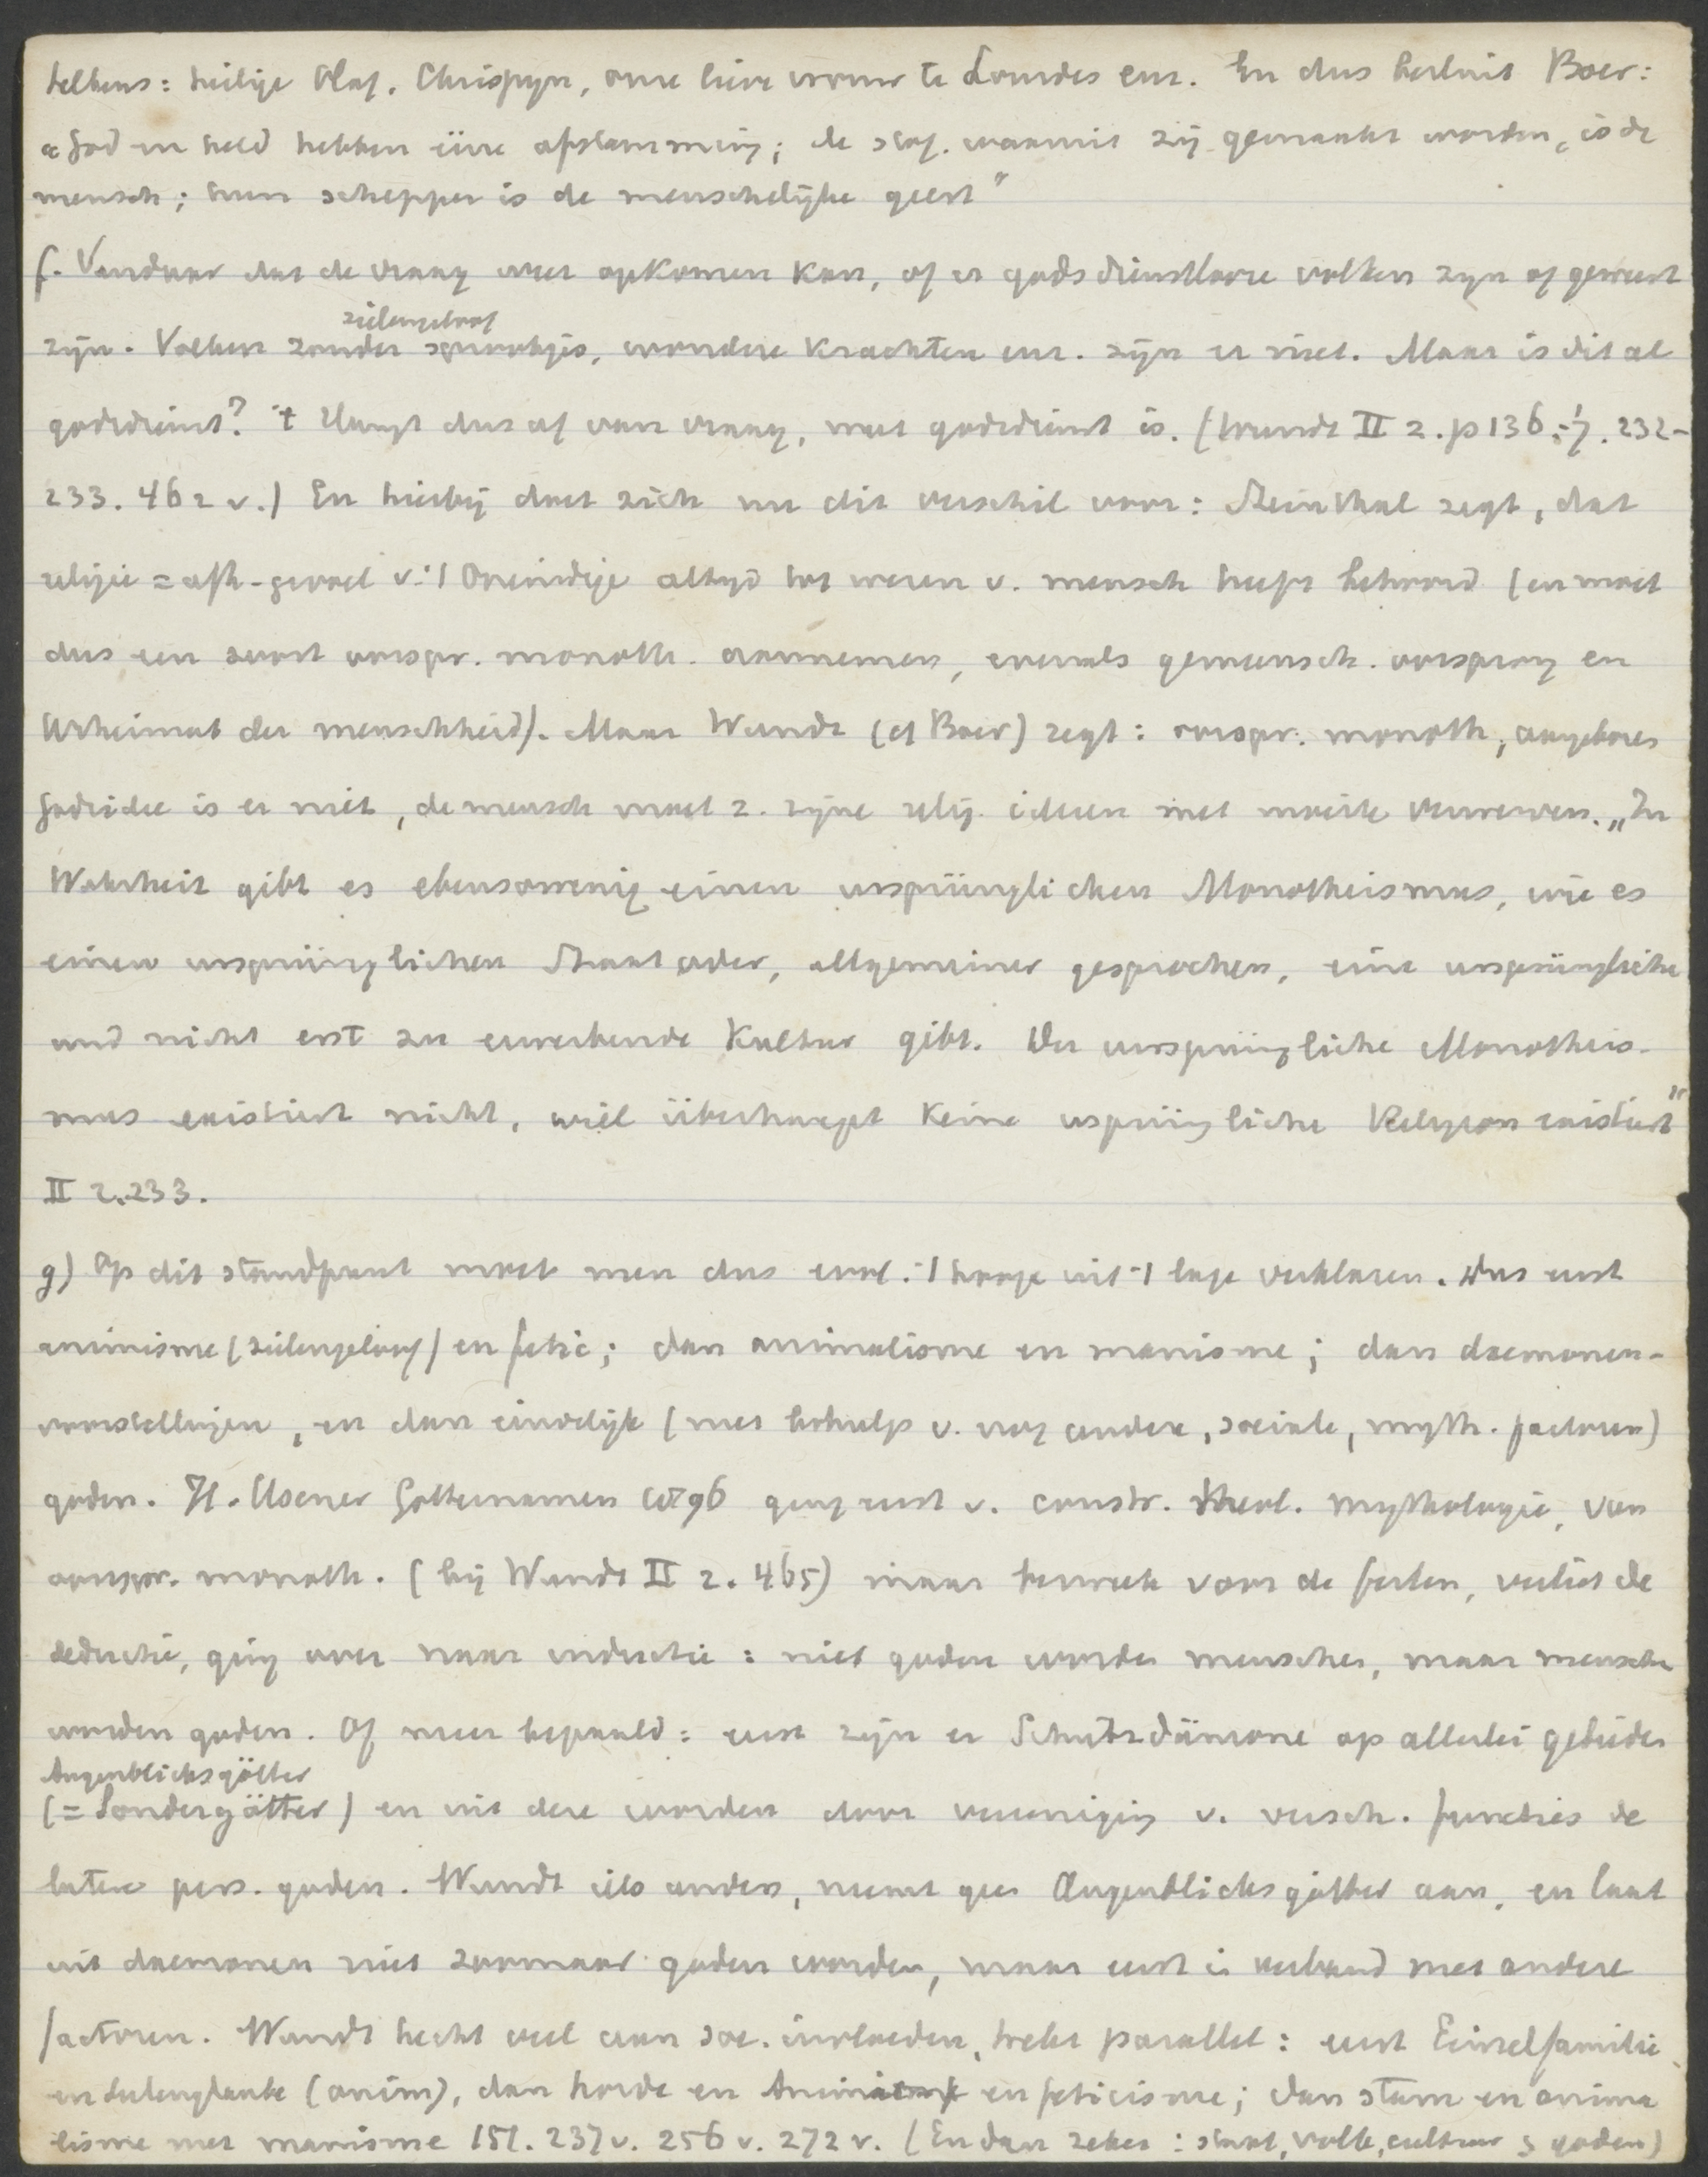 telkens: heilige Olaf. Chrispyn, onze lieve vrouw te Lourdes enz. En dus besluit Boer:
"God en held hebben éene afstamming; de stof. waaruit zij gemaakt worden, is de
mensch; hun schepper is de menschelijke geest"
f. Vandaar dat de vraag weer opkomen kan, of er godsdienstlooze volken zyn of geweest
zijn. Volken zonder zielengeloof sprookjes, wondere krachten enz. zijn er niet. Maar is dit al
godsdienst? 't Hangt dus af van vraag, wat godsdienst is. (Wundt II 2. p 136. 232-
233. 462 v.) En hierbij doet zich nu dit verschil voor: Steinthal zegt, dat
religie = afh-gevoel v. 't Oneindige altyd tot wezen v. mensch heeft behoord (en moet
dus een soort oorspr. monoth. aannemen, evenals gemeensch. oorsprong en
Urheimat der menschheid). Maar Wundt (cf Boer) zegt: oorspr. monoth, aangeboren
Godsidee is er niet, de mensch moet z. zijne relig. ideeen met moeite verwerven. „In
Wahrheit gibt es ebensowenig einen ursprünglichen Monotheismus, wie es
einen ursprünglichen Staat oder, allgemeiner gesprochen, eine ursprüngliche
und nicht erst zu erwerbende Kultur gibt. Der ursprüngliche Monotheis-
mus existiert nicht, weil überhaupt keine ursprüngliche Religion existiert"
II 2.233.
g) Op dit standpunt moet men dus evol. 't hooge uit 't lage verklaren. Dus eerst
animisme (zielengeloof) en fetic; dan animalisme en manisme; dan daemonen-
voorstellingen, en dan eindelijk (met behulp v. nog andere, sociale, myth. factoren)
goden. H. Usener Götternamen 1896 ging eerst v. constr. theol. mythologie, van
oorspr. monoth. (bij Wundt II 2. 465) maar bezweek voor de feiten, verliet de
deductie, ging over naar inductie: niet goden worden menschen, maar menschen
worden goden. Of meer bepaald: eerst zijn er Schutzdämone op allerlei gebieden
Augenblicksgötter
(= Sondergötter) en uit deze worden door vereeniging v. versch. functies de
latere pers. goden. Wundt iets anders, neemt geen Augenblicksgötter aan, en laat
uit daemonen niet zoomaar goden worden, maar eerst in verband met andere
factoren. Wundt hecht veel aan soc. invloeden, trekt parallel: eerst Einzelfamilie
en Seelenglaube (anim), dan horde en Animisme en feticisme; dan stam en anima
lisme met manisme 151. 237 v. 256 v. 272 v. (En dan zeker: staat, volk, cultuur & goden)